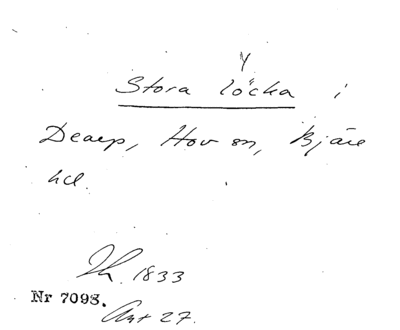 Y
Stora löcka i
Dearp, Hov sn, Bjäre
hd.
Th. 1833
Nr 7098.
Ant 27.